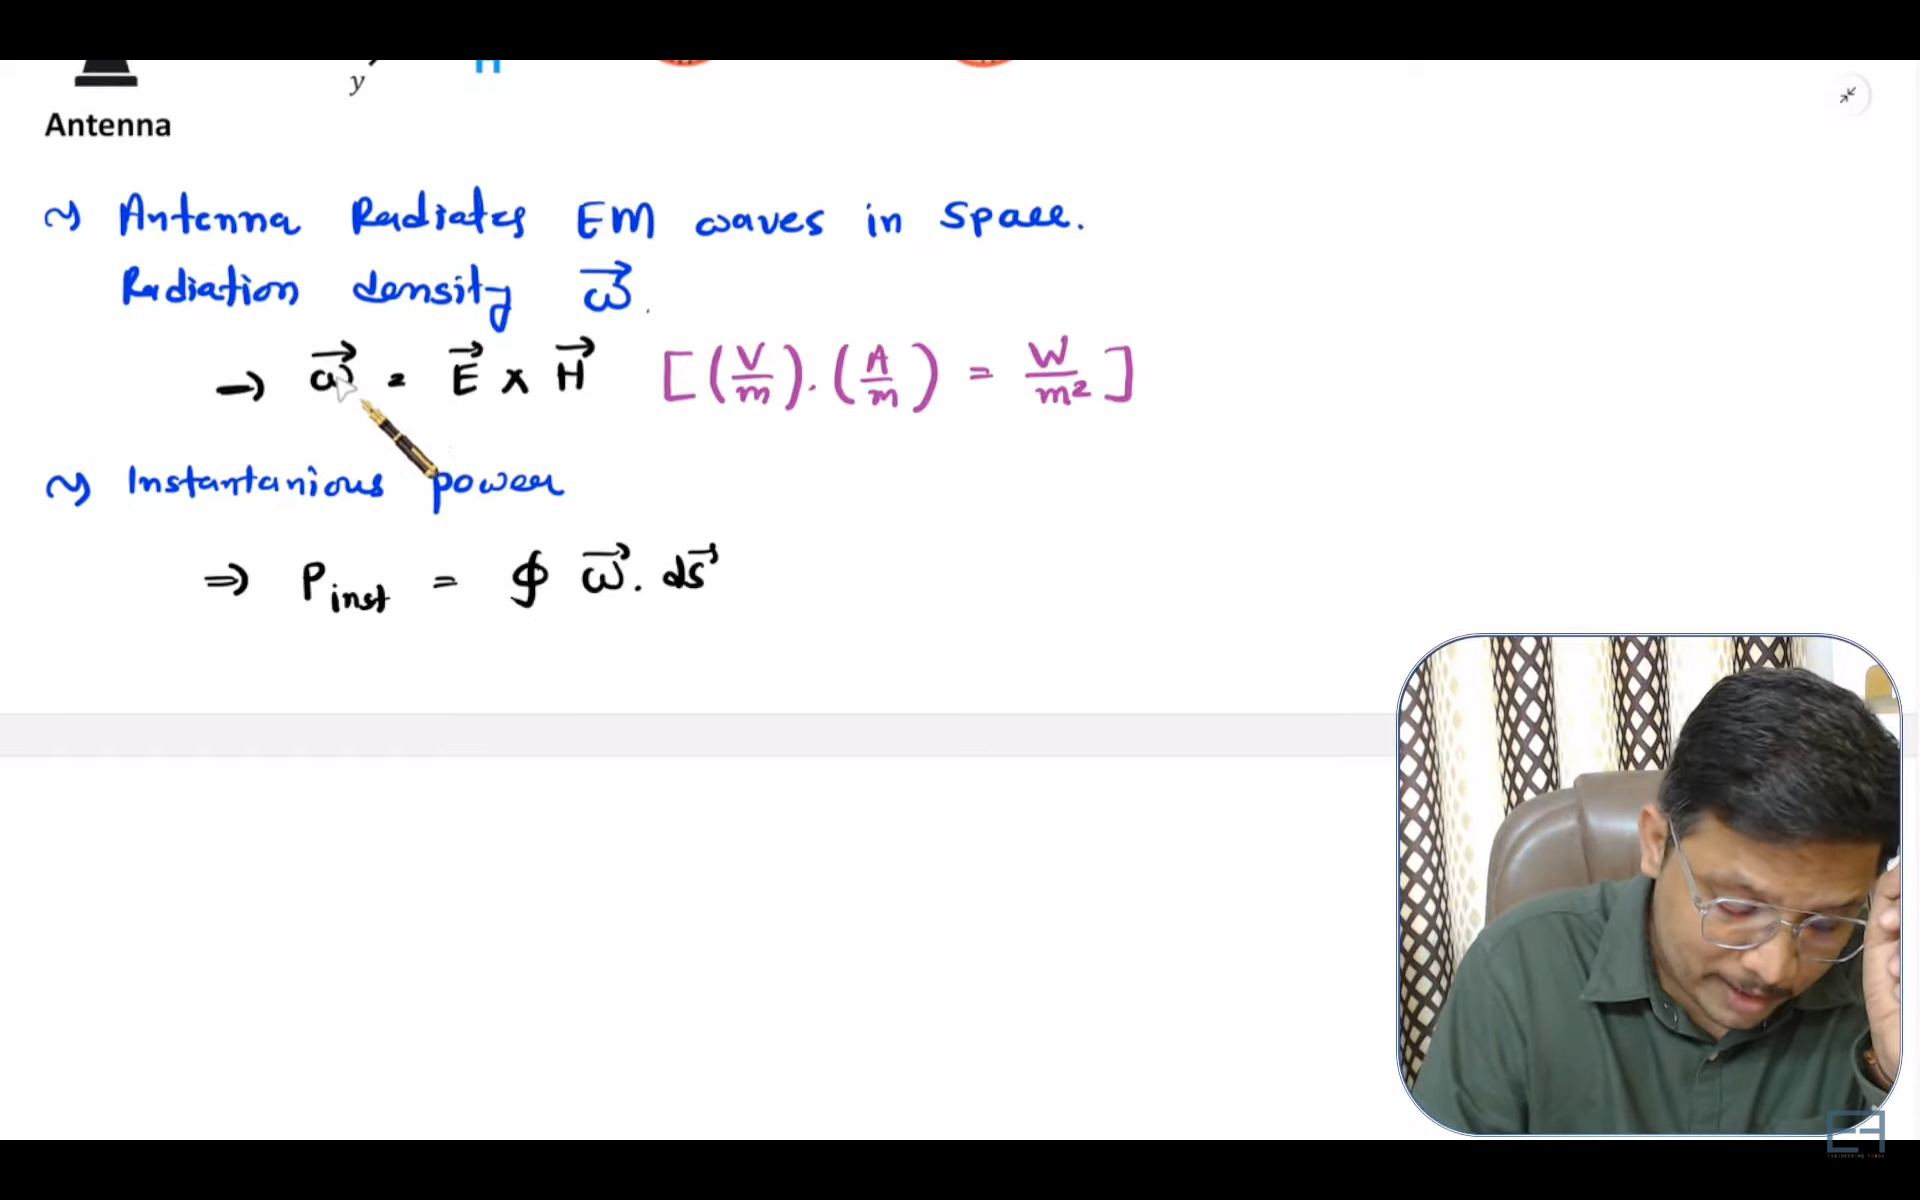 y H
Antenna
~> Antenna Radiates EM waves in space.
Radiation density ω⃗.
→ ω⃗ = E⃗ × H⃗ [(V/m).(A/m) = W/m²]
~> Instantanious power
⇒ Pinst = ∮ ω⃗. ds⃗